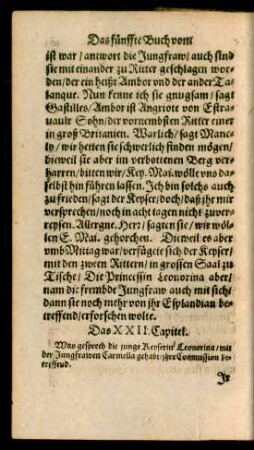 Das fünffte Buch vom
ist war / antwort die Jungfraw / auch sind
sie mit einander zu Ritter geschlagen wor-
den / der ein heißt Ambor vnd der ander Ta-
lanque. Nun kenne ich sie gnugsam / sagt
Gastilles / Ambor ist Angriote von Estra-
vaulx Sohn / der vornembsten Ritter einer
in groß Britanien. Warlich / sagt Mane-
ly / wir hetten sie schwerlich finden mögen /
dieweil sie aber im verbottenen Berg ver-
harren / bitten wir / Key. Mai. wöllt vns da-
selbst hin führen lassen. Ich bin solchs auch
zu frieden / sagt der Keyser / doch / daß jhr mir
versprechen / noch in acht tagen nicht zuver-
reysen. Allergne. Herr / sagten sie / wir wöl-
len E. Mai. gehorchen. Dieweil es aber
vmb Mittag war / verfügete sich der Keyser /
mit den zween Rittern / in grossen Saal zu
Tische / Die Princessin Leonorina aber /
nam die frembde Jungfraw auch mit sich /
dann sie noch mehr von jhr Esplandian be-
treffend / erforschen wolte.
Das XXII. Capitel.
Was gesprech die junge Keyserin Leonorina / mit
der Jungfrawen Carmella gehabt / jhre Commission be-
treffend.
Jr